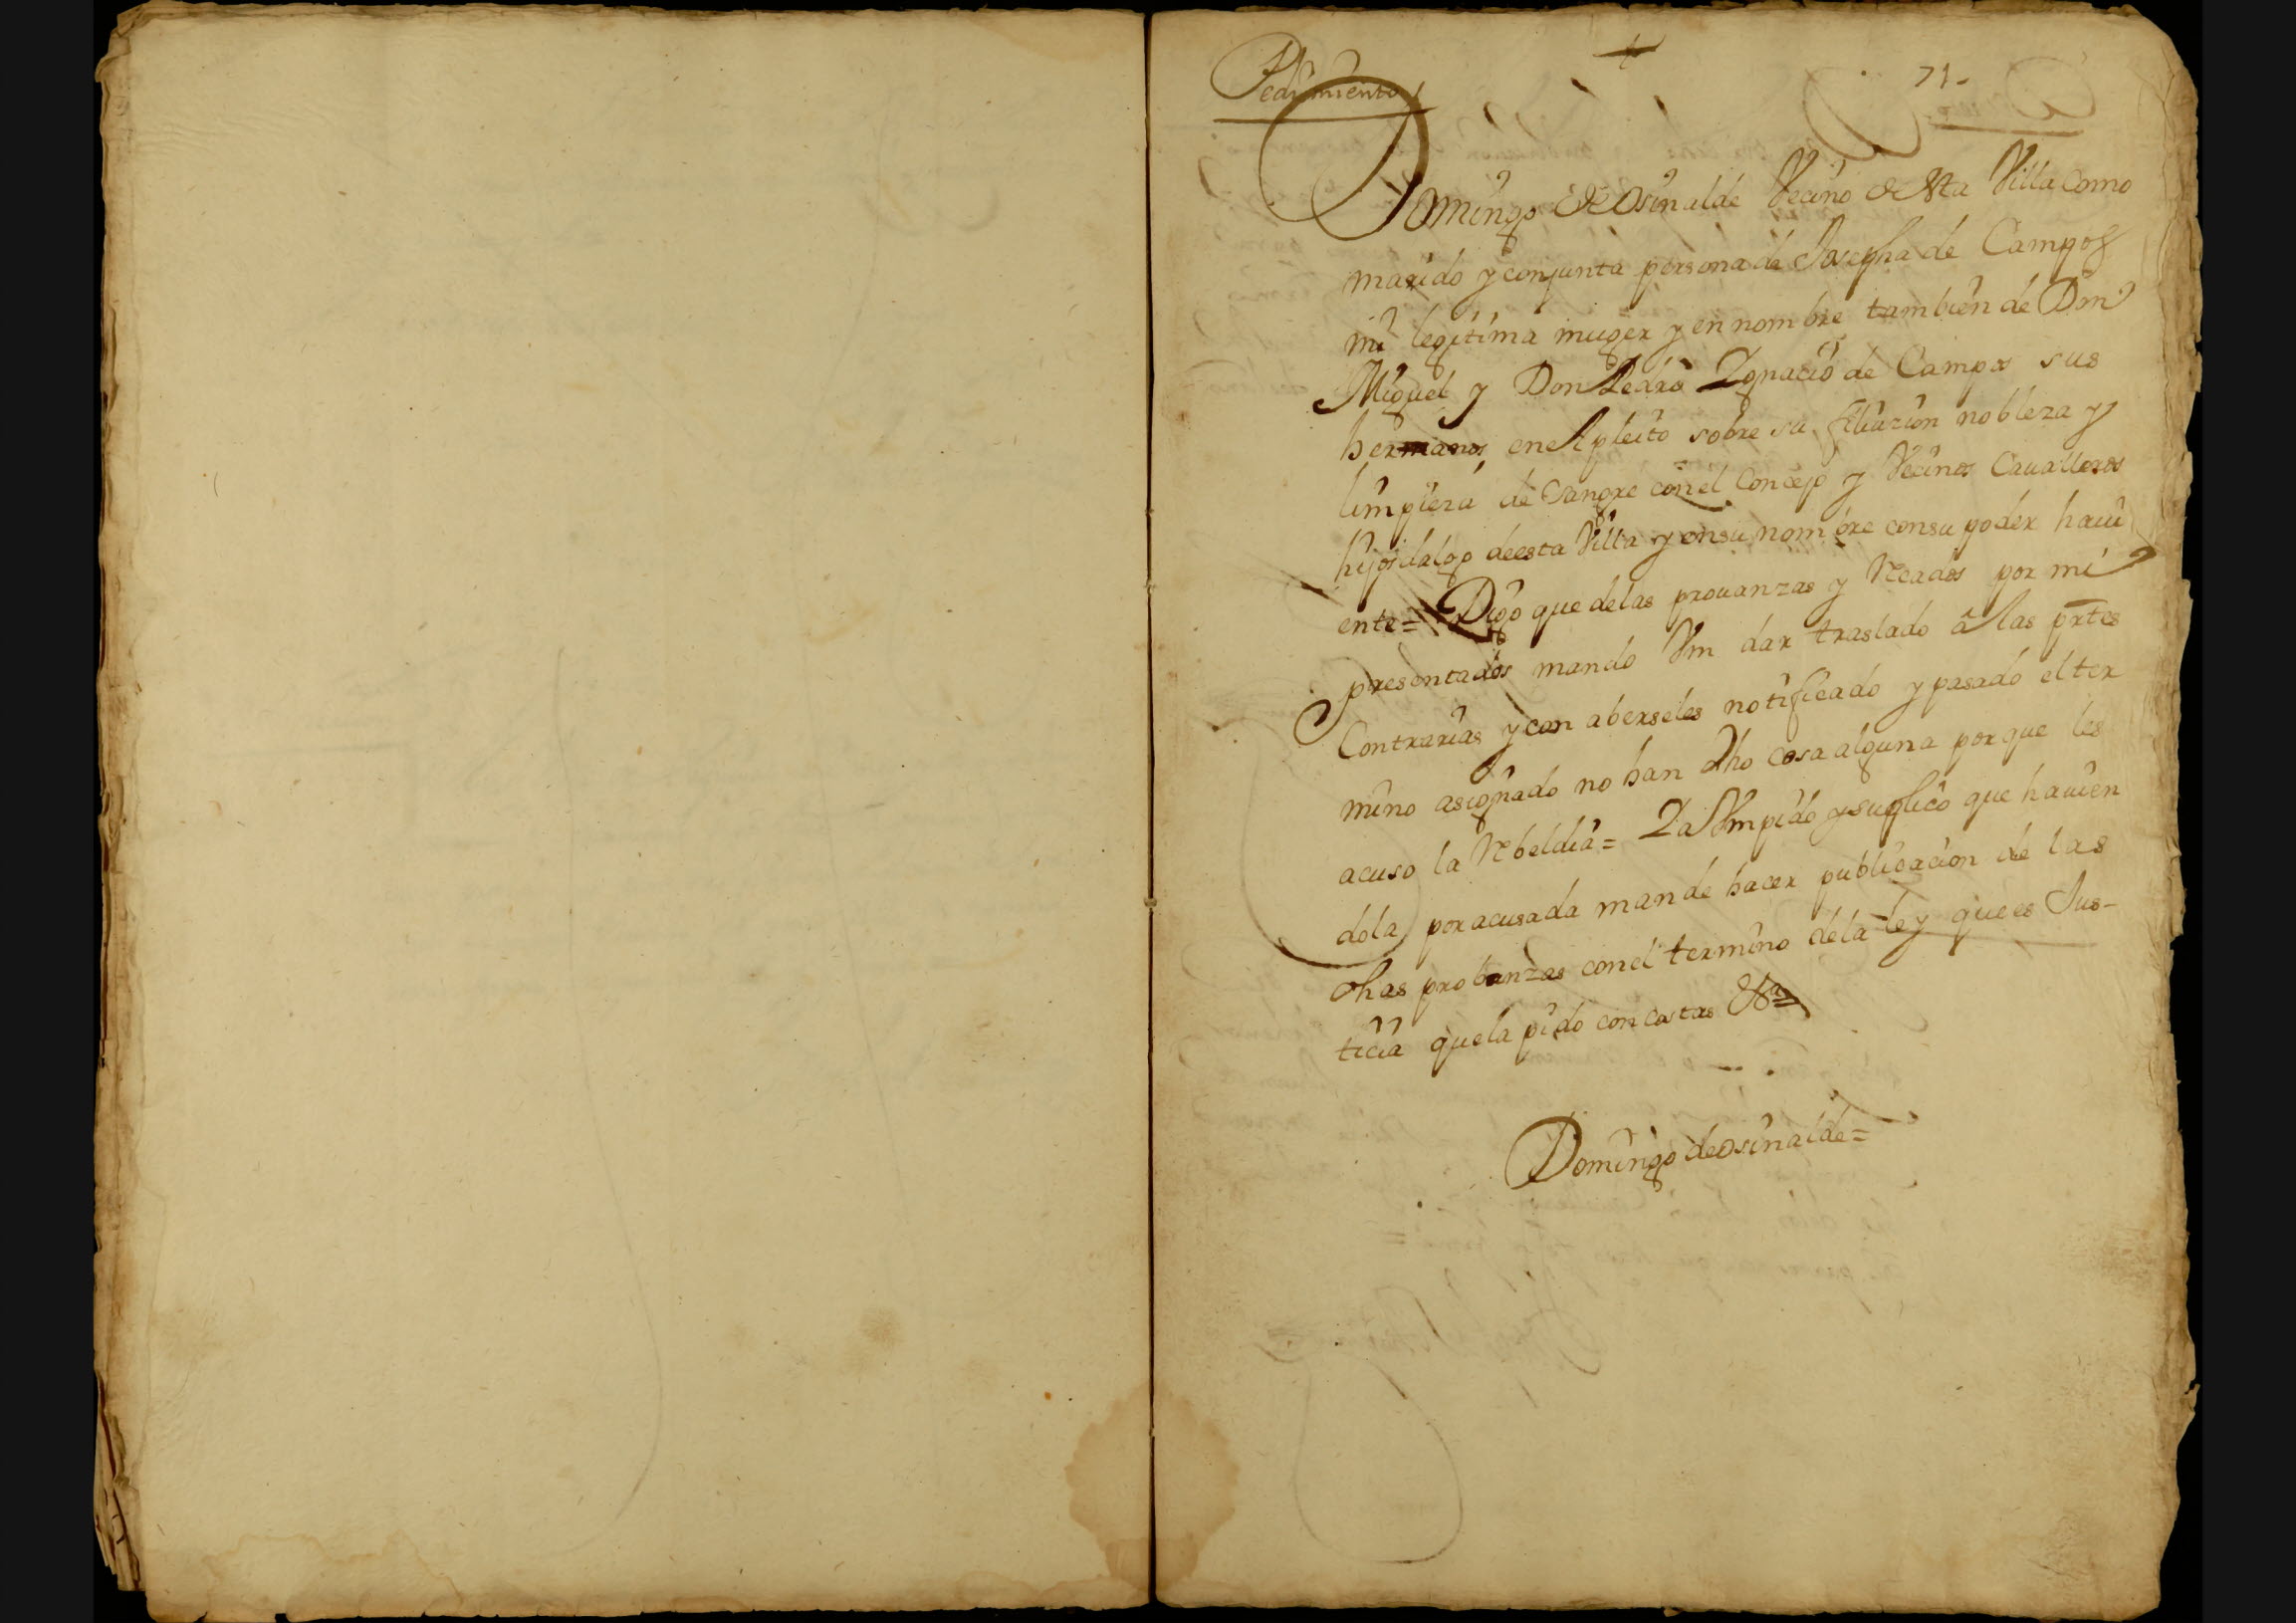 Pedimiento
71.
Domingo de Osinalde Vecino de esta Villa como
marido y conjunta persona de Josepha de Campos
mi legitima muger y en nombre tambien de Don
Miguel y Don Pedro Ygnacio de Campos sus
hermanos, en el pleito sobre su filiazion nobleza y
limpieza de sangre con el Concejo y Vecinos Cavalleros
hijosdalgo de esta Villa y en su nombre con su poder havi
ente = Digo que de las provanzas y Recados por mi
presentados mando Vm dar traslado â las prtes
Contrarias y con aberseles notificado y pasado el ter
mino asignado no han dho cosa alguna por que les
acuso la Rebeldia = Y a Vm pido y suplico que havien
dola por acusada mande hacer publicacion de las
dhas probanzas con el termino de la ley que es Jus-
ticia que la pido con costas &a
Domingo de Osinalde =